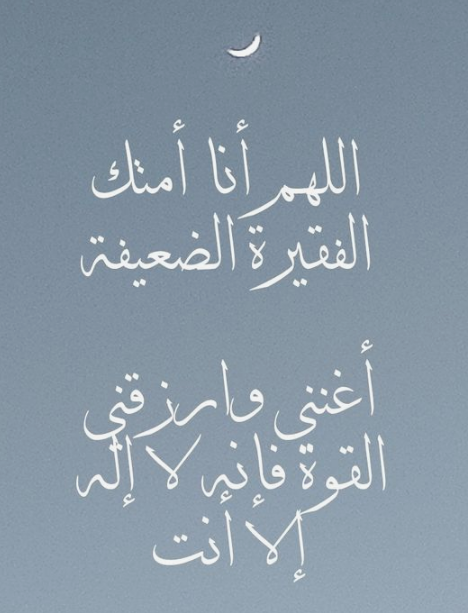 اللهم أنا أمتك
الفقيرة الضعيفة
أغنني وارزقني
القوة فإنه لا إله
إلا أنت